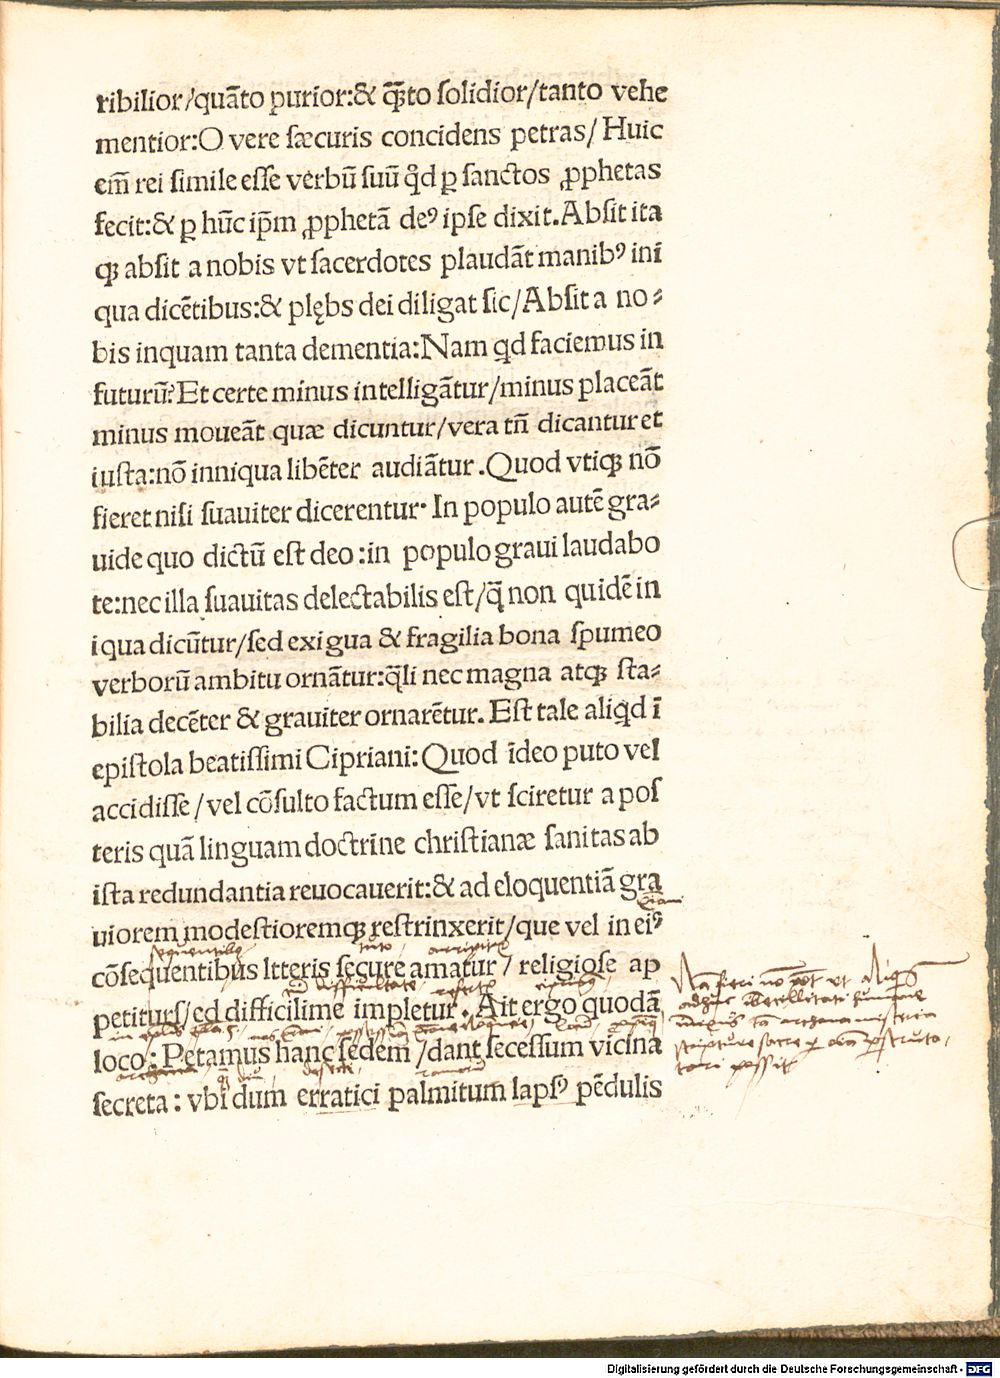 ribilior/quāto purior:& q̄ꝫto solidior/tanto vehe
mentior:O vere sæcuris concidens petras/Huic
em̄ rei simile esse verbū suū qd̉ ꝑ sanctos ꝓphetas
fecit:& ꝑ hūc ip̄m ꝓphetā deꝰ ipse dixit.Absit ita
qꝫ absit a nobis vt sacerdotes plaudāt manibꝰ inī
qua dicētibus:& plębs dei diligat sic/Absit a no⸗
bis inquam tanta dementia:Nam qd faciemus in
futurū?Et certe minus intelligātur/minus placeāt
minus moueāt quæ dicuntur/vera tn̄ dicantur et
iusta:nō inniqua libēter audiātur.Quod vtiqꝫ nō
fieret nisi suauiter dicerentur· In populo autē gra⸗
uide quo dictū est deo:in populo graui laudabo
te:nec illa suauitas delectabilis est/q̄ non quidē in
iqua dicūtur/sed exigua & fragilia bona spumeo
verborū ambitu ornātur:q̄li nec magna atqꝫ sta⸗
bilia decēter & grauiter ornarētur. Est tale aliqd ī
epistola beatissimi Cipriani:Quod īdeo puto vel
accidisse/vel cōsulto factum esse/vt sciretur a pos
teris quā linguam doctrine christianæ sanitas ab
ista redundantia reuocauerit:& ad eloquentiā gra
uiorem modestioremqꝫ restrinxerit/que vel in eiꝰ
sequentibꝫ tuto
cōsequentibus ltteris secure amatur/ religiose ap
difficultate
petiturs/ed difficilime impletur. Ait ergo quodā
loco: Petamus hanc sedem /dant secessum vicina
secreta: vbi dum erratici palmitum lapsꝰ pēdulis
Digitalisierung gefördert durch die Deutsche Forschungsgemeinschaft - DFG